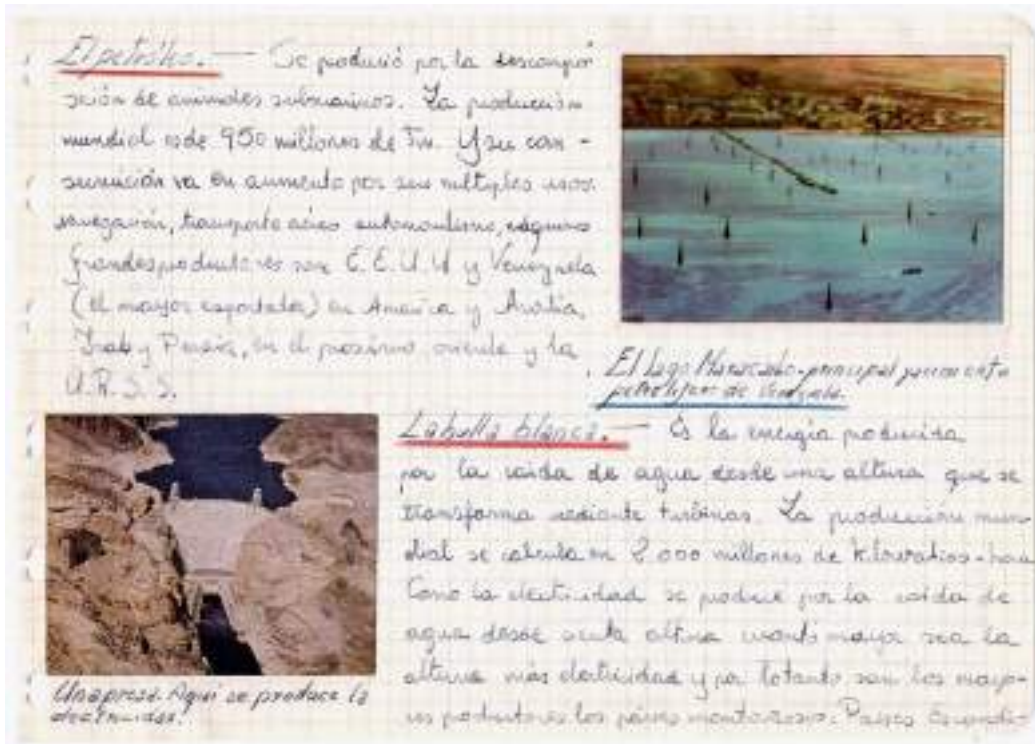 El petróleo. — Se produció por la descompo
sición de animales submarinos. La producción
mundial es de 950 millones de Tm. Y su con -
sumición va en aumento por sus multiples usos:
navegación, transporte aéreo automovilismo, máquinas
grandes productores son E.E.U.U y Venezuela
(el mayor exportador) en America y Arabia,
Irak y Persia, en el proximo oriente y la
U.R.S.S.
El Lago Maracaibo-principal yacimiento
petrolifero de Venezuela.
La hulla blanca. — Es la energia producida
por la caida de agua desde una altura que se
transforma mediante turbinas. La producción mun
dial se calcula en 2.000 millones de kilowatios-hora
Como la electricidad se produce por la caida de
agua desde cierta altura cuanto mayor sea la
altura más electricidad y por lo tanto son los mayo-
res productores los países montañosos. Países Escandi-
Una presa. Aquí se produce la
electricidad.